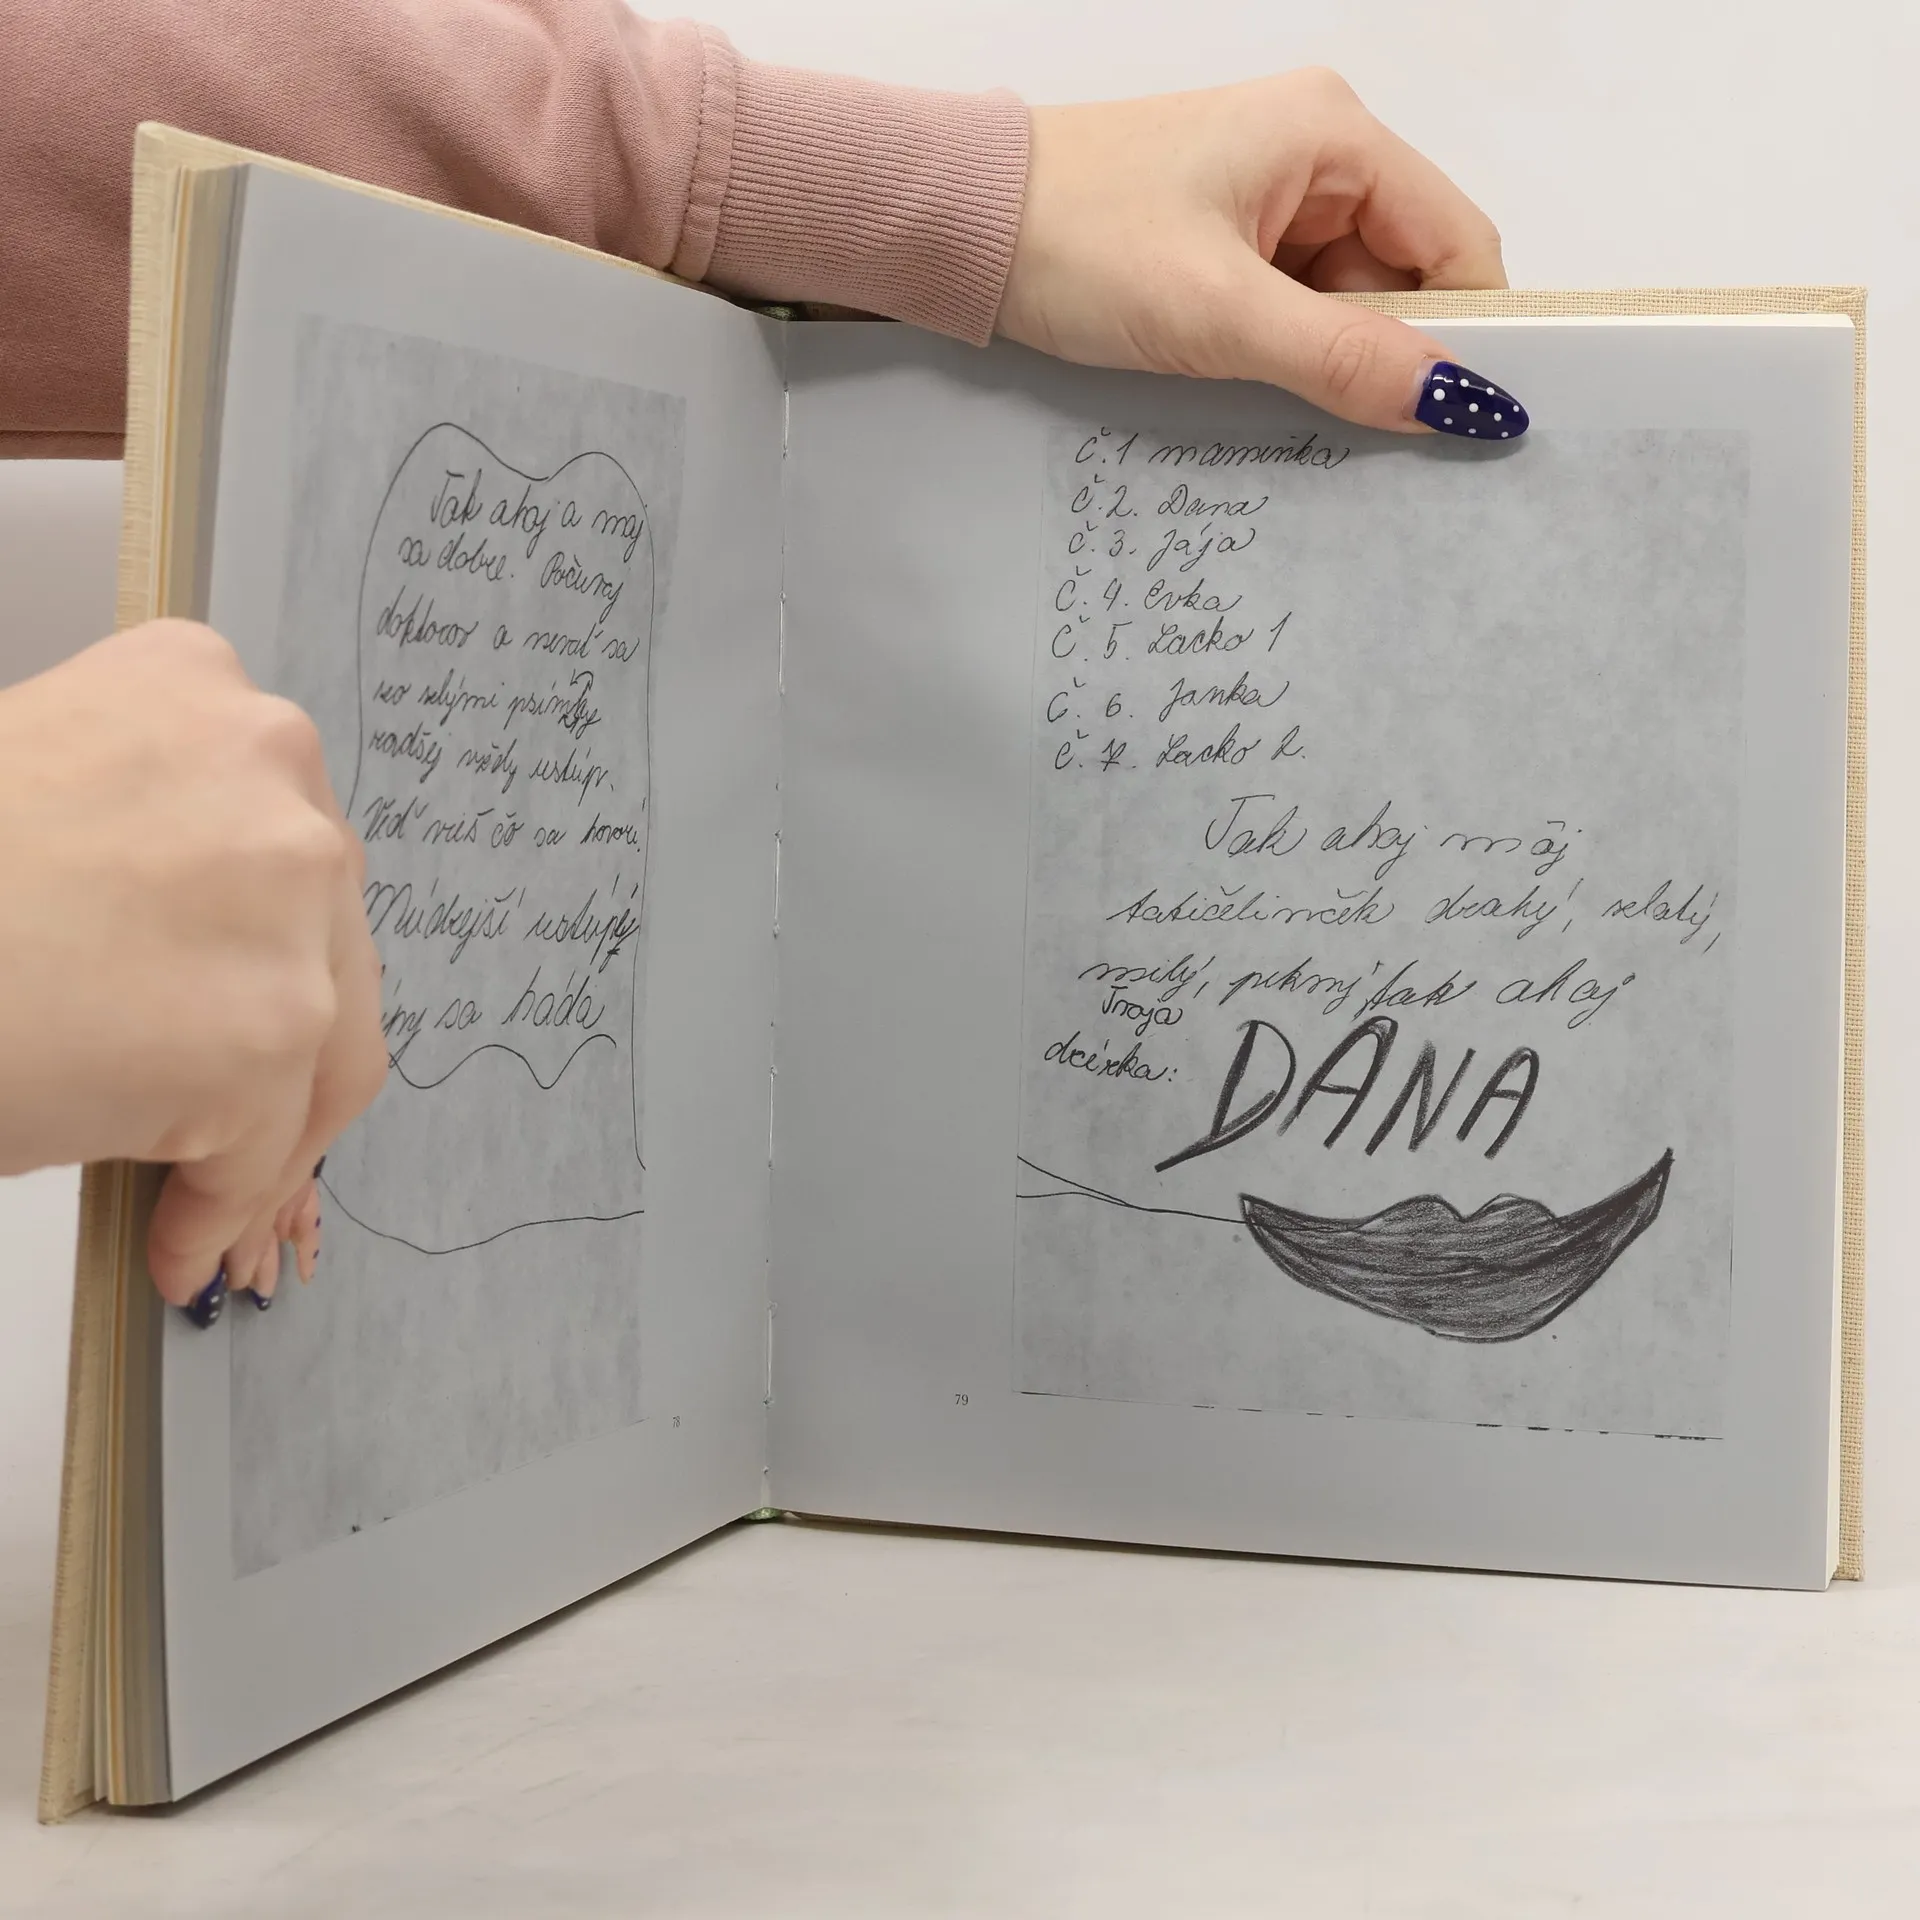 Tak ahoj a maj
sa dobre. Počúvaj
doktorov a nevaď sa
so zlými
radšej vždy ustúp.
Veď vieš čo sa hovorí!
Múdrejší ustúpi
sa háda
78
Č.1 maminka
Č.2. Dana
Č.3. Jája
Č.4. Evka
Č.5. Lacko 1
Č.6. Janka
Č.7. Lacko 2.
Tak ahoj môj
tatičelinček drahý, zlatý,
milý, pekný, tak ahoj
Tvoja
dcérka:
DANA
79